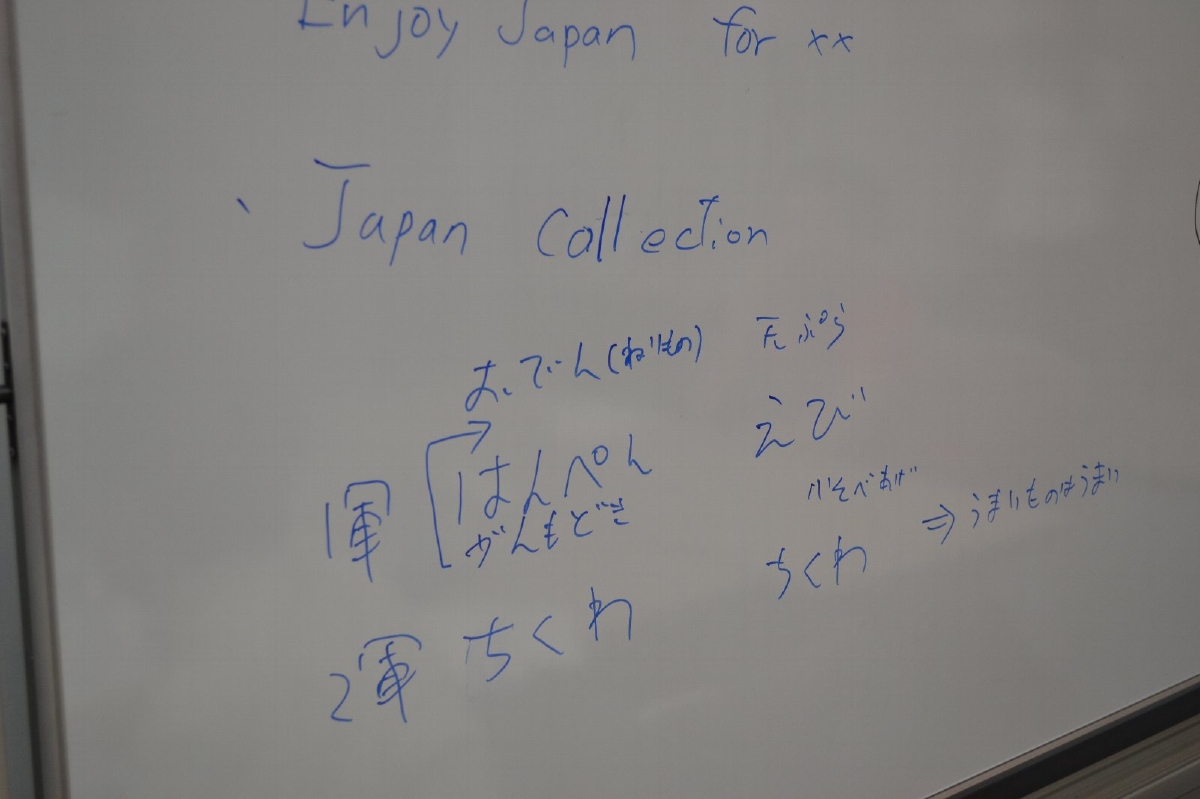 Enjoy Japan for xx
Japan Collection
おでん(ねりもの) 天ぷら
1軍 はんぺん えび
がんもどき いそべあげ
2軍 ちくわ ちくわ ⇒ うまいものはうまい